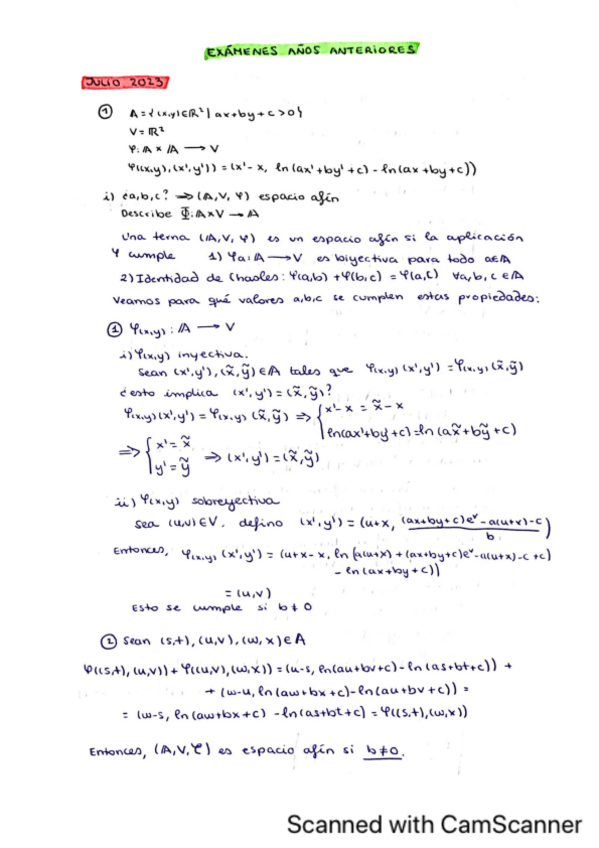 EXÁMENES AÑOS ANTERIORES
JULIO 2023
① A = {(x,y)∈ℝ² | ax+by+c>0}
V = ℝ²
φ: A × A → V
φ((x,y),(x',y')) = (x'-x, ln(ax'+by'+c) - ln(ax+by+c))
i) ¿a,b,c? ⇒ (A,V,φ) espacio afín
Describe Φ: A×V → A
Una terna (A,V,φ) es un espacio afín si la aplicación
φ cumple 1) φa: A → V es biyectiva para todo a∈A
2) Identidad de Chasles: φ(a,b) + φ(b,c) = φ(a,c) ∀a,b,c∈A
Veamos para qué valores a,b,c se cumplen estas propiedades:
① φ(x,y): A → V
i) φ(x,y) inyectiva.
Sean (x',y'), (x̃,ỹ)∈A tales que φ(x,y)(x',y') = φ(x,y)(x̃,ỹ)
¿esto implica (x',y') = (x̃,ỹ)?
φ(x,y)(x',y') = φ(x,y)(x̃,ỹ) ⇒ { x'-x = x̃-x
ln(ax'+by'+c) = ln(ax̃+bỹ+c)
⇒ { x' = x̃
y' = ỹ ⇒ (x',y') = (x̃,ỹ)
ii) φ(x,y) sobreyectiva
Sea (u,v)∈V. defino (x',y') = (u+x, (ax+by+c)eᵛ-a(u+x)-c / b)
Entonces, φ(x,y)(x',y') = (u+x-x, ln(a(u+x)+(ax+by+c)eᵛ-a(u+x)-c+c)
- ln(ax+by+c))
= (u,v)
Esto se cumple si b≠0
② Sean (s,t), (u,v), (w,x)∈A
φ((s,t),(u,v)) + φ((u,v),(w,x)) = (u-s, ln(au+bv+c)-ln(as+bt+c)) +
+ (w-u, ln(aw+bx+c)-ln(au+bv+c)) =
= (w-s, ln(aw+bx+c) - ln(as+bt+c) = φ((s,t),(w,x))
Entonces, (A,V,φ) es espacio afín si b≠0.
Scanned with CamScanner